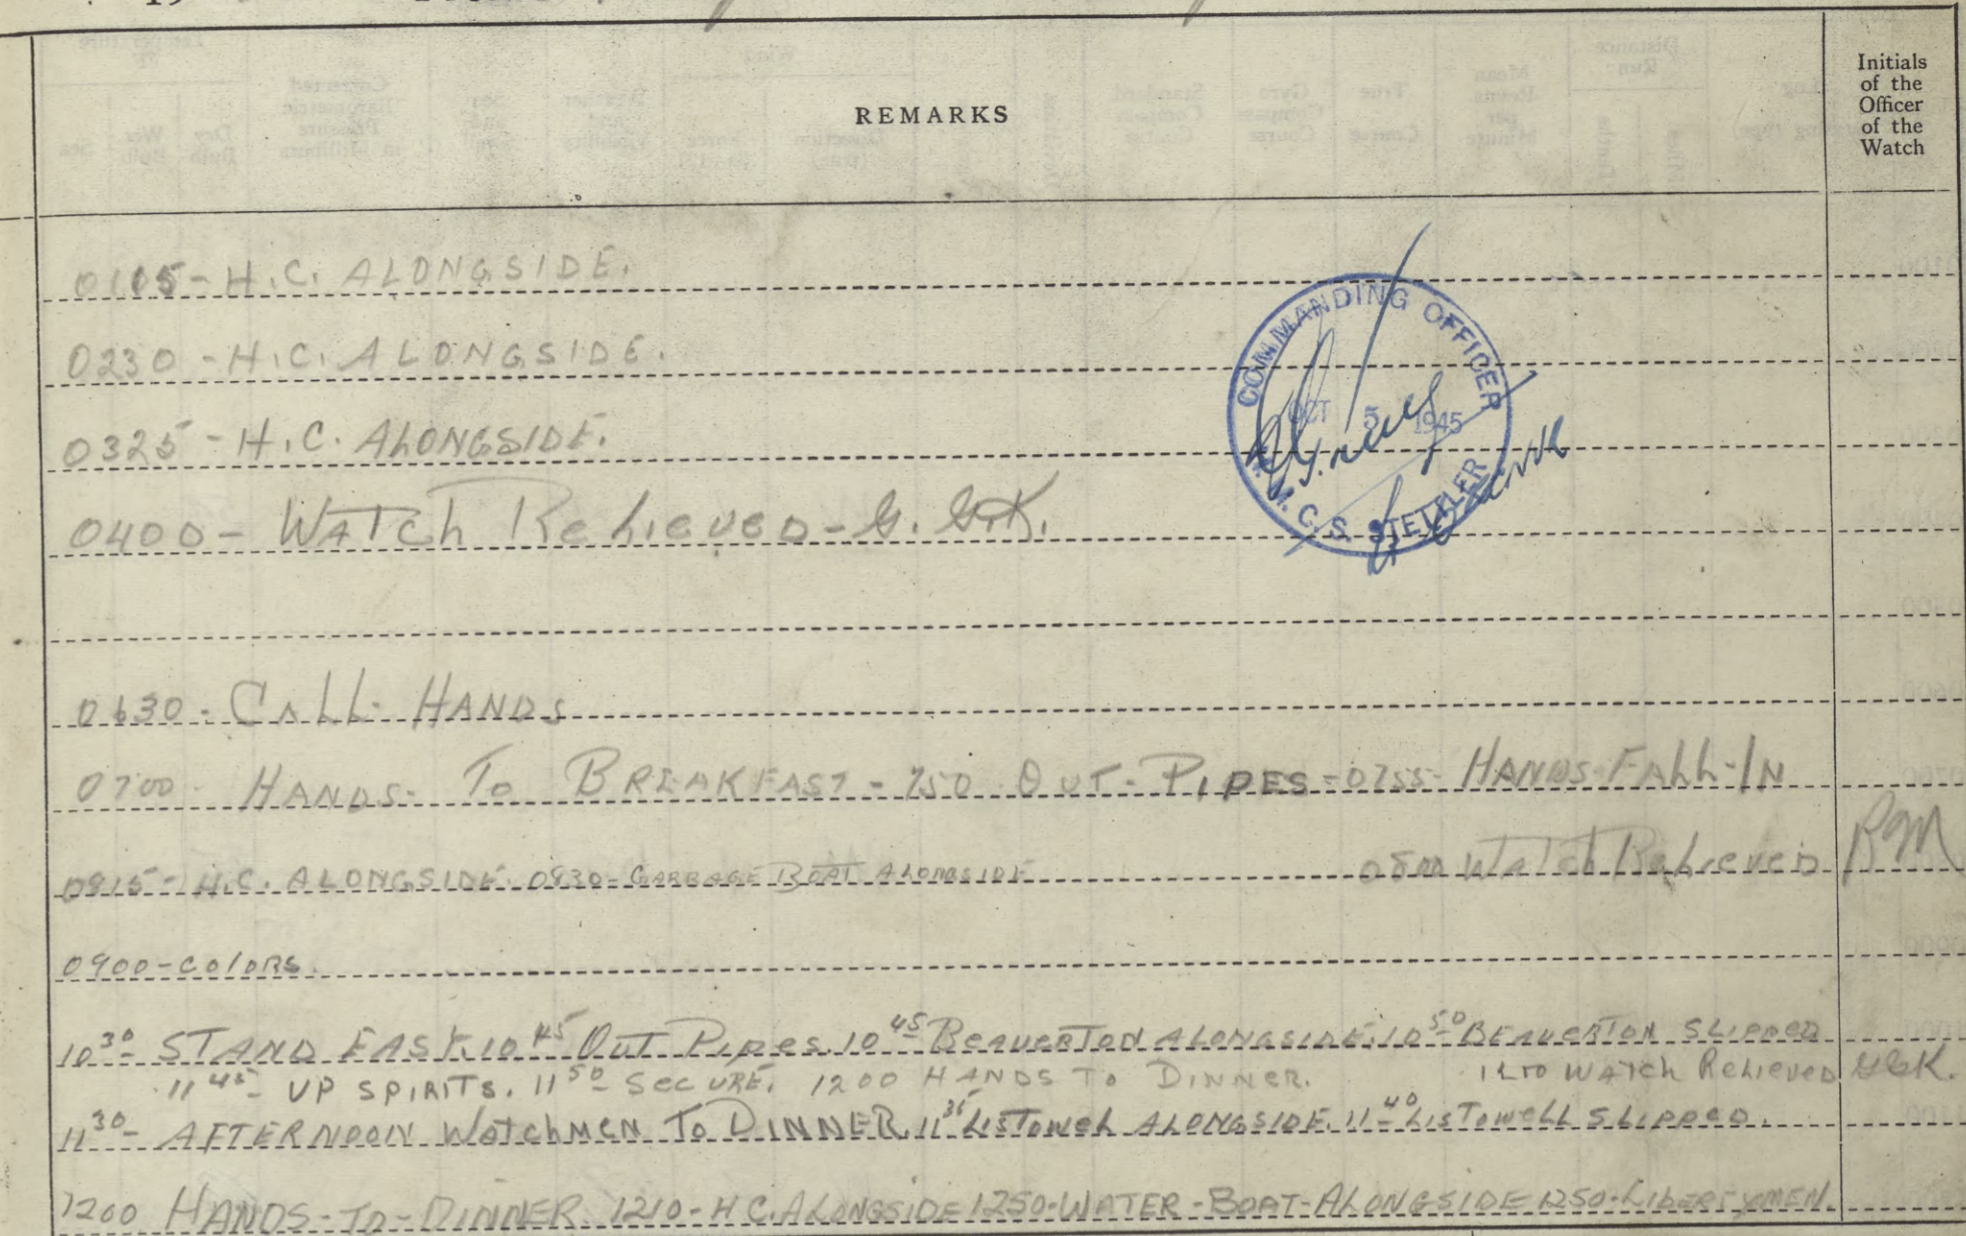 REMARKS
Initials
of the
Officer
of the
Watch
0105 - H.C. ALONGSIDE.
0230 - H.C. ALONGSIDE.
0325 - H.C. ALONGSIDE.
COMMANDING OFFICER
OCT 5 1945
H.M.C.S. STETTLER
0400 - WATCh Relieved - G. G.K.
0630 - CALL - HANDS
0700 - HANDS - To BREAKFAST - 750 OUT - PIPES - 0755 - HANDS - FALL - IN
0800 Watch Relieved RM
0815 - H.C. ALONGSIDE. 0830 - GARBAGE BOAT ALONGSIDE
0900 - COLORS.
10 30 STAND EASY. 10 45 OUT PIPES. 10 45 BEAVERTON ALONGSIDE. 10 50 BEAVERTON SLIPPED
11 45 - UP SPIRITS. 11 50 - SECURE. 1200 HANDS To DINNER. 1200 WATCh Relieved GGK.
11 30 - AFTERNOON WATCHMEN To DINNER. 11 35 LISTOWEL ALONGSIDE. 11 40 - LISTOWELL SLIPPED.
1200 HANDS - TO - DINNER 1210 - H C. ALONGSIDE 1250 - WATER - BOAT - ALONGSIDE 1250 - LIBERTYMEN.